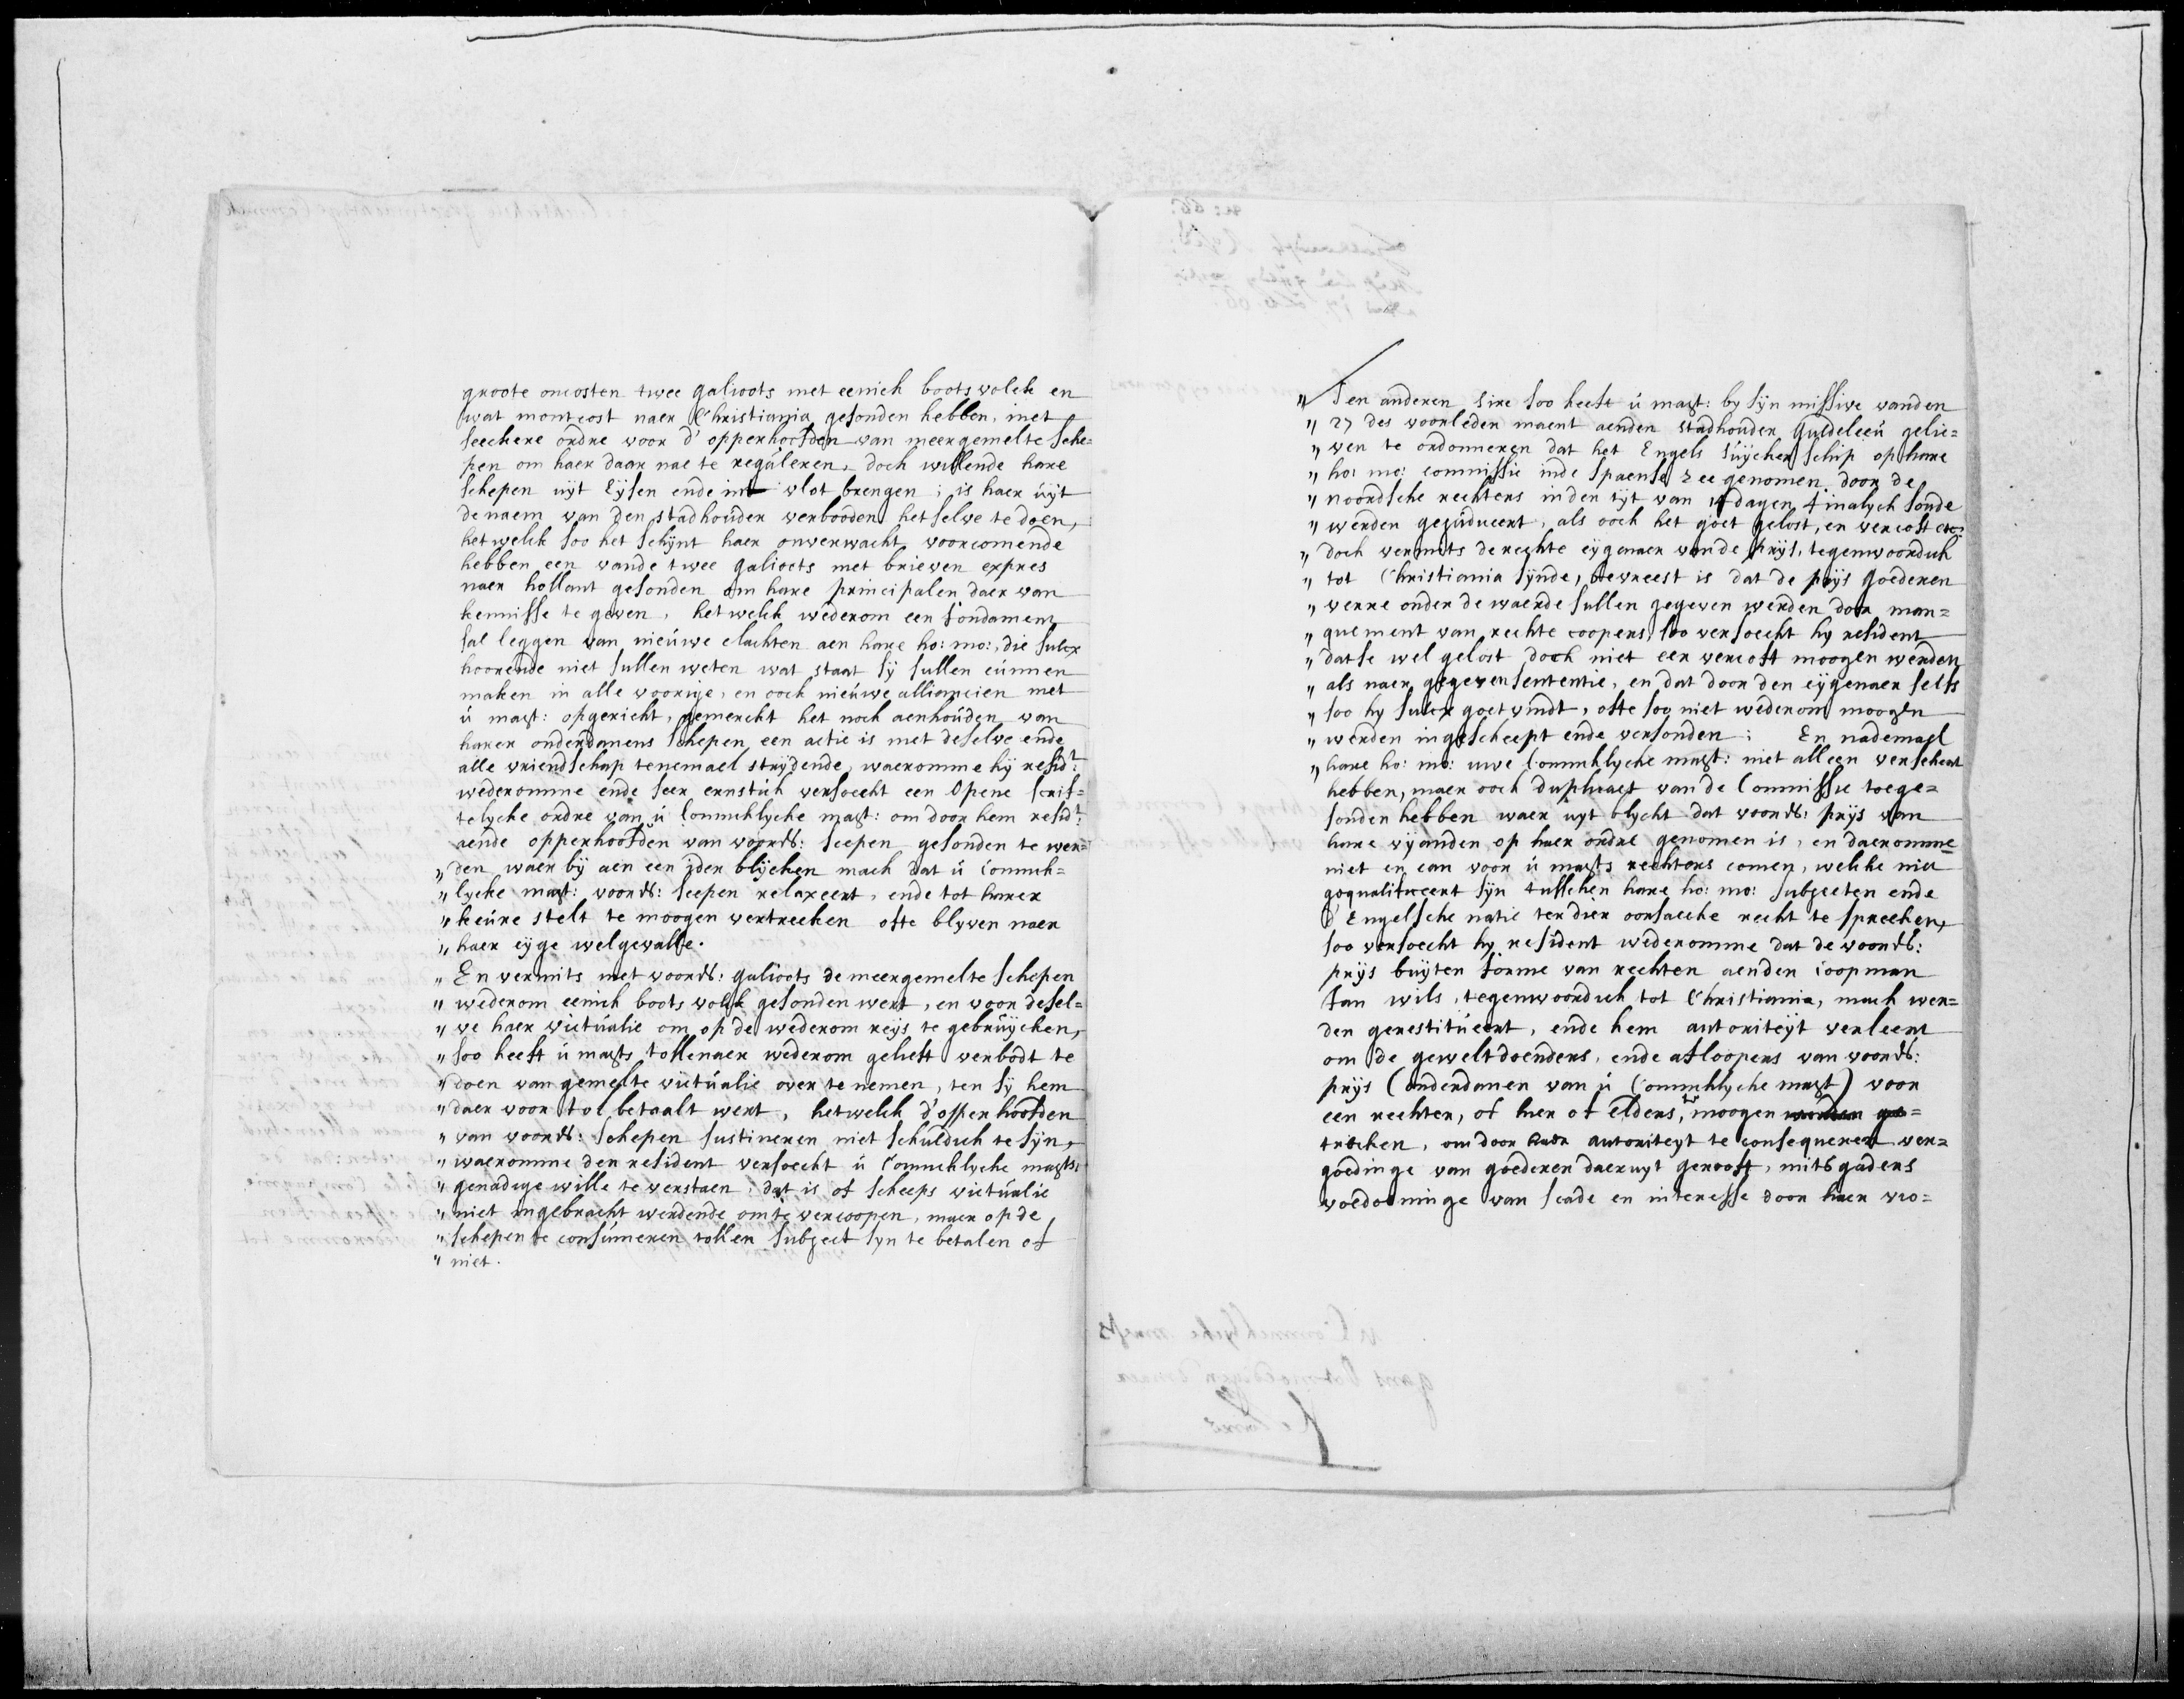 groote oncosten twee galioots met eenich bootsvolck en
wat montcost naer Christiania gesonden hebben, met
seeckere ordre voor d' opperhoofden van meergemelte sche=
pen om haer daar nae te reguleren, doch willende hare
schepen uyt Eysen ende int vlot brengen; is haer uyt
de naem van den stadhouder verbooden hetselve te doen,
het welck soo het schynt haer onverwacht voorcomende
hebben een vande twee galioots met brieven expres
naer hollant gesonden om hare principalen daer van
kennisse te geven, het welck wederom een fondament
sal leggen van nieuwe clachten aen hare ho: mo:, die sulcx
hoorende niet sullen weten wat staat sy sullen cunnen
maken in alle voorige, en ooch nieuwe alliancien met
u mayt: opgericht, gemerckt het noch aenhouden van
harer onderdanens schepen een actie is met deselve ende
alle vriendschap tenemael strydende, waeromme hy resid.t:
wederomme ende seer ernstich versoeckt een Opene scrif=
telycke ordre van u Connichlycke mayt: om door hem resid.t:
aende opperhoofden van voords: seepen gesonden te wer=
" den waer by aen een yder blycken mach dat u connich=
" lycke mayt: voords: seepen relaxeert, ende tot harer
" keure stelt te moogen vertrecken ofte blyven naer
" haer eyge welgevalle.
" En vermits met voords: galioots de meergemelte schepen
" wederom eenich boots volck gesonden wert, en voor desel=
" ve haer victualie om op de wederom reys te gebruycken,
" soo heeft u mayts tollenaer wederom gelieft verbodt te
" doen van gemelte victualie over te nemen, ten sy hem
" daer voor tol betaalt wert, het welck d'opperhoofden
" van voords: schepen sustineren niet schuldich te syn,
" waeromme den resident versoeckt u Connichlycke mayts:
" genadige wille te verstaen, dat is of scheeps victualie
" niet ingebracht werdende om te vercoopen, maer op de
" schepen te consumeren tollen subject syn te betalen of
" niet.
" Ten anderen Sire soo heeft u mayt: by syn missive vanden
" 27 des voorleden maent aenden stadhouder Guldeleeu gelie=
" ven te ordonneren dat het Engels suycker schip op hare
" ho: mo: commissie inde Spaense zee genomen door de
" noordsche rechters inden tyt van 14 dagen finalych sonde
" werden gejudiceert, als ooch het goet gelost, en vercoft etc:
" doch vermits de rechte eygenaer vande prys, tegenwoordich
" tot Christiania synde, bevreest is dat de prys goederen
" verre onder de waerde sullen gegeven werden door man=
" quement van rechte coopers, soo versoeckt hy resident
" datse wel gelost doch niet eer vercoft moogen werden
" als naer gegeven sententie, en dat door den eygenaer selfs
" soo hy sulcx goetvindt, ofte soo niet wederom moogen
" werden ingescheept ende versonden: En nademael
" hare ho: mo: uwe Connichlycke mayt: niet alleen versekert
hebben, maer ooch duplicaet van de Commissie toege=
sonden hebben waer uyt blyckt dat voords: prys van
hare vyanden op haer ordre genomen is, en daeromme
niet en can voor u mayts rechters comen, welcke niet
gequalificeert syn tusschen hare ho: mo: subjecten ende
d' Engelsche natie ter dier oorsaecke recht te spreecken,
soo versoeckt hy resident wederomme dat de voords:
prys buyten forme van rechten aenden coopman
Jan wils, tegenwoordich tot Christiania, mach wer=
den gerestitueert, ende hem autoriteyt verleent
om de geweltdoenders, ende afloopers van voords:
prys (onderdanen van u Connichlycke mayt) voor
een rechter, of hier of elders, moogen
trecken, om door haer autoriteyt te consequeren ver=
goedinge van goederen daeruyt gerooft, mitsgaders
voldoeninge van scade en interesse door haer vio=